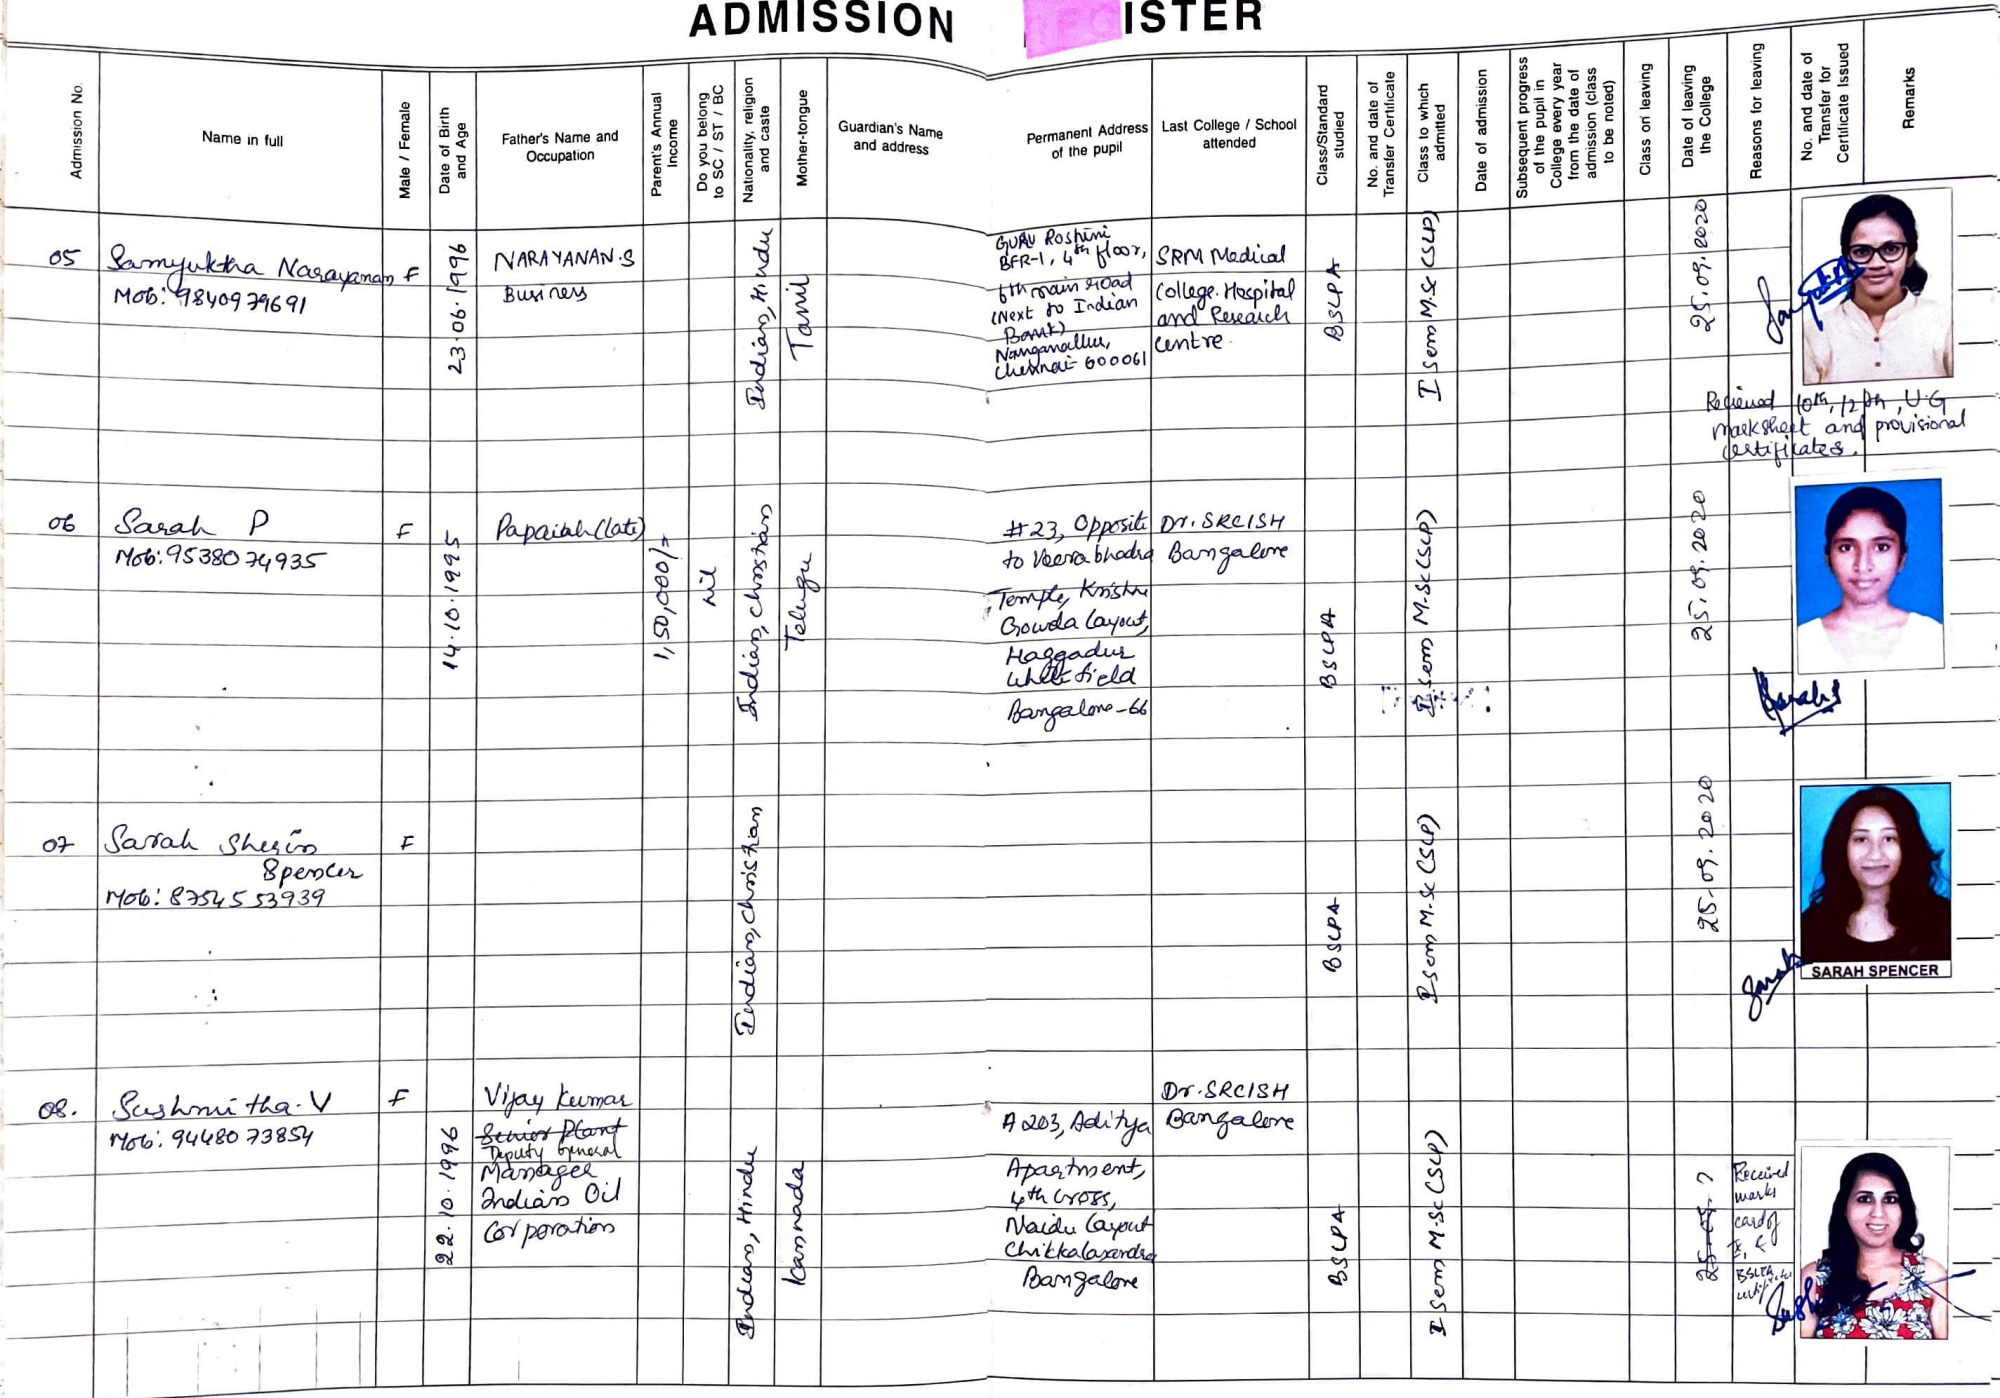 ADMISSION ISTER
Admission No.
Name in full
Male / Female
Date of Birth
and Age
Father's Name and
Occupation
Parent's Annual
Income
Do you belong
to SC / ST / BC
Nationality, religion
and caste
Mother-tongue
Guardian's Name
and address
Permanent Address
of the pupil
Last College / School
attended
Class/Standard
studied
No. and date of
Transfer Certificate
Class to which
admitted
Date of admission
Subsequent progress
of the pupil in
College every year
from the date of
admission (class
to be noted)
Class on leaving
Date of leaving
the College
Reasons for leaving
No. and date of
Transfer for
Certificate Issued
Remarks
05
Samyuktha Narayanan
Mob: 9840979691
F
23.06.1996
NARAYANAN.S
Business
Indian, Hindu
Tamil
GURU Roshini
BFR-1, 4th floor,
6th main road
(Next to Indian
Bank)
Nanganallur,
Chennai- 600061
SRM Medical
College. Hospital
and Research
Centre.
BSLPA
I sem M.Sc (SLP)
25.09.2020
Recieved 10th, 12th, U.G
marksheet and provisional
certificates.
06
Sarah P
Mob: 9538074935
F
14.10.1995
Papaiah (late)
1,50,000/=
nil
Indian, Christian
Telugu
#23, Opposite
to Veerabhadra
Temple, Krishna
Gowda Layout,
Haggadur
Whitefield
Bangalore-66
Dr. SRCISH
Bangalore
BSLPA
I sem M.Sc (SLP)
25.09.2020
Sarah
07
Sarah Sherin
Spencer
Mob: 8754553939
F
Indian, Christian
BSLPA
I sem M.Sc (SLP)
25.09.2020
Sarah
SARAH SPENCER
08.
Sushmitha.V
Mob: 9448073854
F
22.10.1996
Vijay Kumar
Senior Plant
Deputy General
Manager
Indian Oil
Corporation
Indian, Hindu
Kannada
A 203, Aditya
Apartment,
4th cross,
Naidu Layout
Chikkalasandra
Bangalore
Dr. SRCISH
Bangalore
BSLPA
I sem M.Sc (SLP)
Received
marks
card of
BSLPA